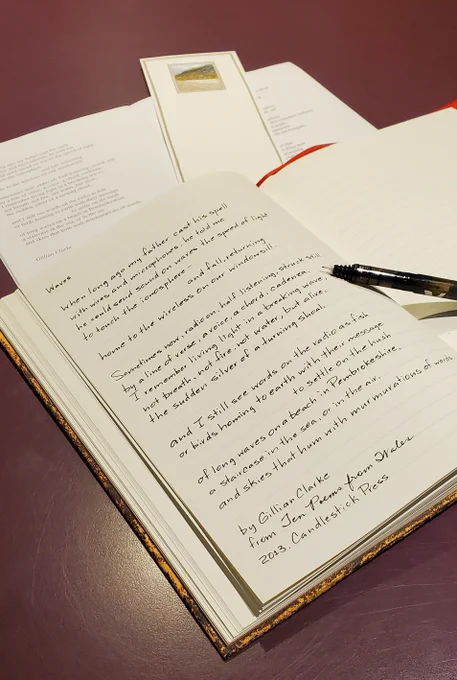 Waves
When long ago my father cast his spell
with wires and microphones, he told me
he could send sound on waves the speed of light
to touch the ionosphere - and fall, returning
home to the wireless on our windowsill.
Sometimes now, radio on, half listening, struck still
by a line of verse, a voice, a chord, cadenza,
I remember living light in a breaking wave,
not breath, not fire, not water, but alive;
the sudden silver of a turning shoal.
and I still see words on the radio as fish
or birds homing to earth with their message
to settle on the hush
of long waves on a beach in Pembrokeshire,
a staircase in the sea, or in the air,
and skies that hum with murmurations of words.
by Gillian Clarke
from Ten Poems from Wales
2013. Candlestick Press
Gillian Clarke